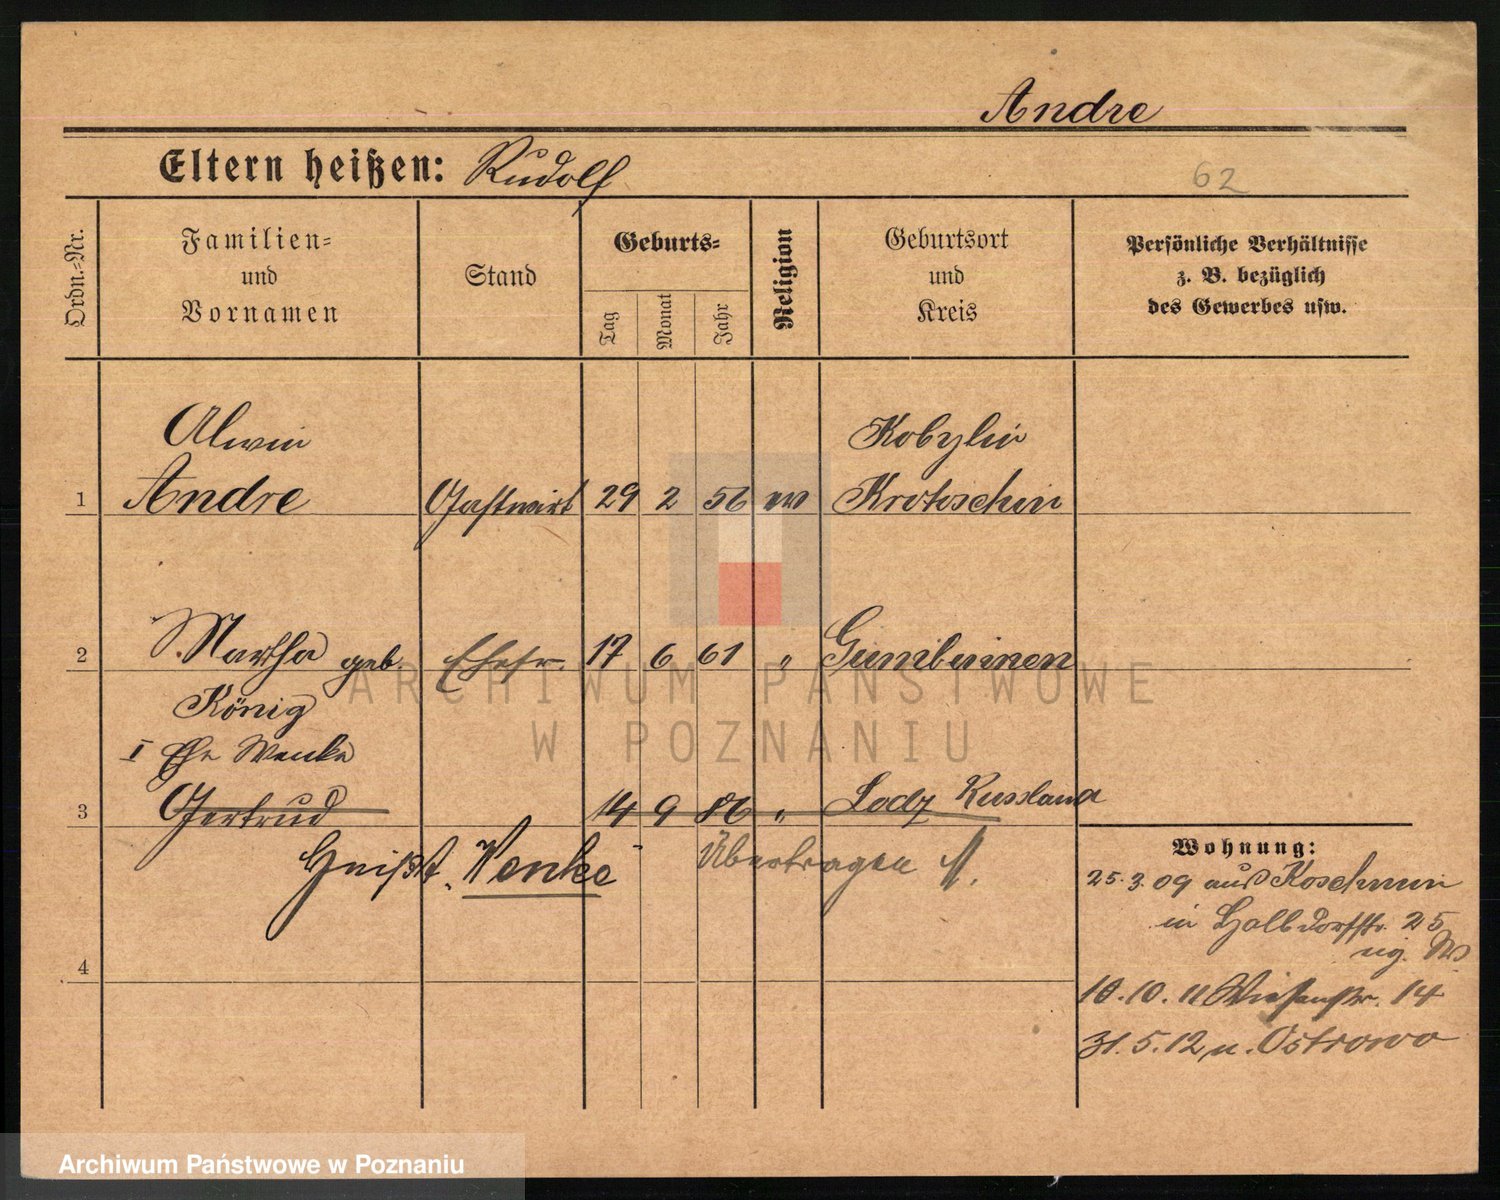 Andre
Eltern heißen: Rudolf
62
Ordn.-Nr.
Familien-
und
Vornamen
Stand
Geburts-
Tag
Monat
Jahr
Religion
Geburtsort
und
Kreis
Persönliche Verhältnisse
z. B. bezüglich
des Gewerbes usw.
Alwin Kobylin
1 Andre Gastwirt 29 2 56 Krotoschin
2 Martha geb. Ehefr. 17 6 61 " Gumbinnen
König
I Ehe Wenke
3 Gertrud 14 9 86 " Lodz Russland
heißt. Wenke Übertragen
Wohnung:
25.3.09 aus Koschmin
in Halbdorfstr. 25
4
10.10.11 Wiesenstr. 14
31.5.12 n. Ostrowo
ARCHIWUM PAŃSTWOWE
W POZNANIU
Archiwum Państwowe w Poznaniu